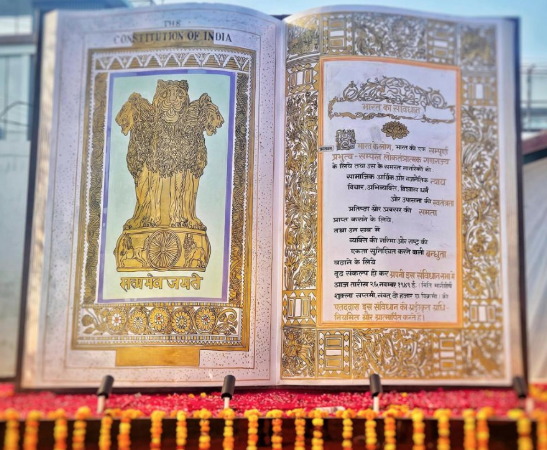 THE
CONSTITUTION OF INDIA
सत्यमेव जयते
भारत का संविधान
भारत के लोग, भारत को एक सम्पूर्ण
प्रभुत्व-सम्पन्न लोकतंत्रात्मक गणराज्य
के लिये तथा उस के समस्त नागरिकों को
सामाजिक आर्थिक और राजनैतिक न्याय
विचार, अभिव्यक्ति, विश्वास धर्म
और उपासना की स्वतंत्रता
प्रतिष्ठा और अवसर की समता
प्राप्त कराने के लिये,
तथा उन सब में
व्यक्ति की गरिमा और राष्ट्र की
एकता सुनिश्चित करने वाली बन्धुता
बढ़ाने के लिये
दृढ़ संकल्प हो कर अपनी इस संविधान सभा में
आज तारीख २६ नवम्बर १९४९ ई. (मिति मार्गशीर्ष
शुक्ला सप्तमी, संवत् दो हजार छः विक्रमी) को
एतद्द्वारा इस संविधान को अंगीकृत अधि-
नियमित और आत्मार्पित करते हैं।